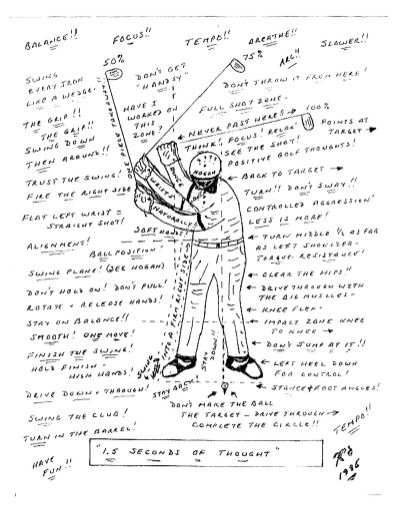 BALANCE!! FOCUS!! TEMPO!! BREATHE!! SLOWER!!
50%
75%
ARC!!
SWING
EVERY IRON
LIKE A WEDGE.
DON'T GET
"HANDSY"
DON'T THROW IT FROM HERE!
ONE PIECE TAKEAWAY!!
HAVE I
WORKED ON
THIS
ZONE?
FULL SHOT ZONE.
THE GRIP!!
THE GRIP!!
NEVER PAST HERE!! 100%
POINTS AT
TARGET
SWING DOWN
THEN AROUND!!
THINK! FOCUS! RELAX.
SEE THE SHOT!
POSITIVE GOLF THOUGHTS!
TRUST THE SWING!
FIRE THE RIGHT SIDE
HINGE
WRISTS
NATURALLY!
BACK TO TARGET
TURN!! DON'T SWAY!!
CONTROLLED AGGRESSION!
FLAT LEFT WRIST =
STRAIGHT SHOT!
LESS IS MORE!
SOFT HANDS
ALIGNMENT!
BALL POSITION!
TURN MIDDLE 1/2 AS FAR
AS LEFT SHOULDER-
TORQUE. RESISTANCE!
SWING PLANE! (SEE HOGAN)
CLEAR THE HIPS!!
DON'T HOLD ON! DON'T PULL!
ROTATE + RELEASE HANDS!
DRIVE THROUGH WITH
THE BIG MUSCLES-
KNEE FLEX-
STAY ON BALANCE!!
IMPACT ZONE KNEE
TO KNEE
SMOOTH! ONE MOVE!
DON'T JUMP AT IT!!
FINISH THE SWING!
HOLD FINISH -
HIGH HANDS!
SWING INTO A FIRM RIGHT SIDE
STAY DOWN
LEFT HEEL DOWN
FOR CONTROL!
DRIVE DOWN + THROUGH!
STAY BACK
STANCE + FOOT ANGLES!
SWING THE CLUB!
DON'T MAKE THE BALL
THE TARGET - DRIVE THROUGH
COMPLETE THE CIRCLE!!
TURN IN THE BARREL!
TEMPO!!
"1.5 SECONDS OF THOUGHT"
HAVE
FUN!!
1985